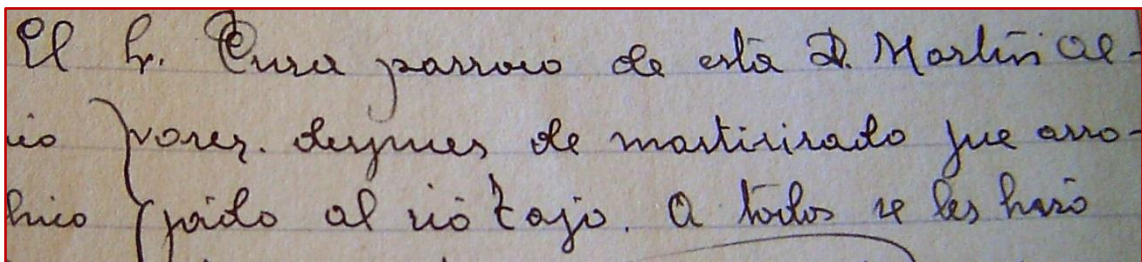 El Sr. Cura parroco de está D. Martin Al-
io varez. despues de martirizado fue arro-
hico jado al rió tajo. A todos se les hizo